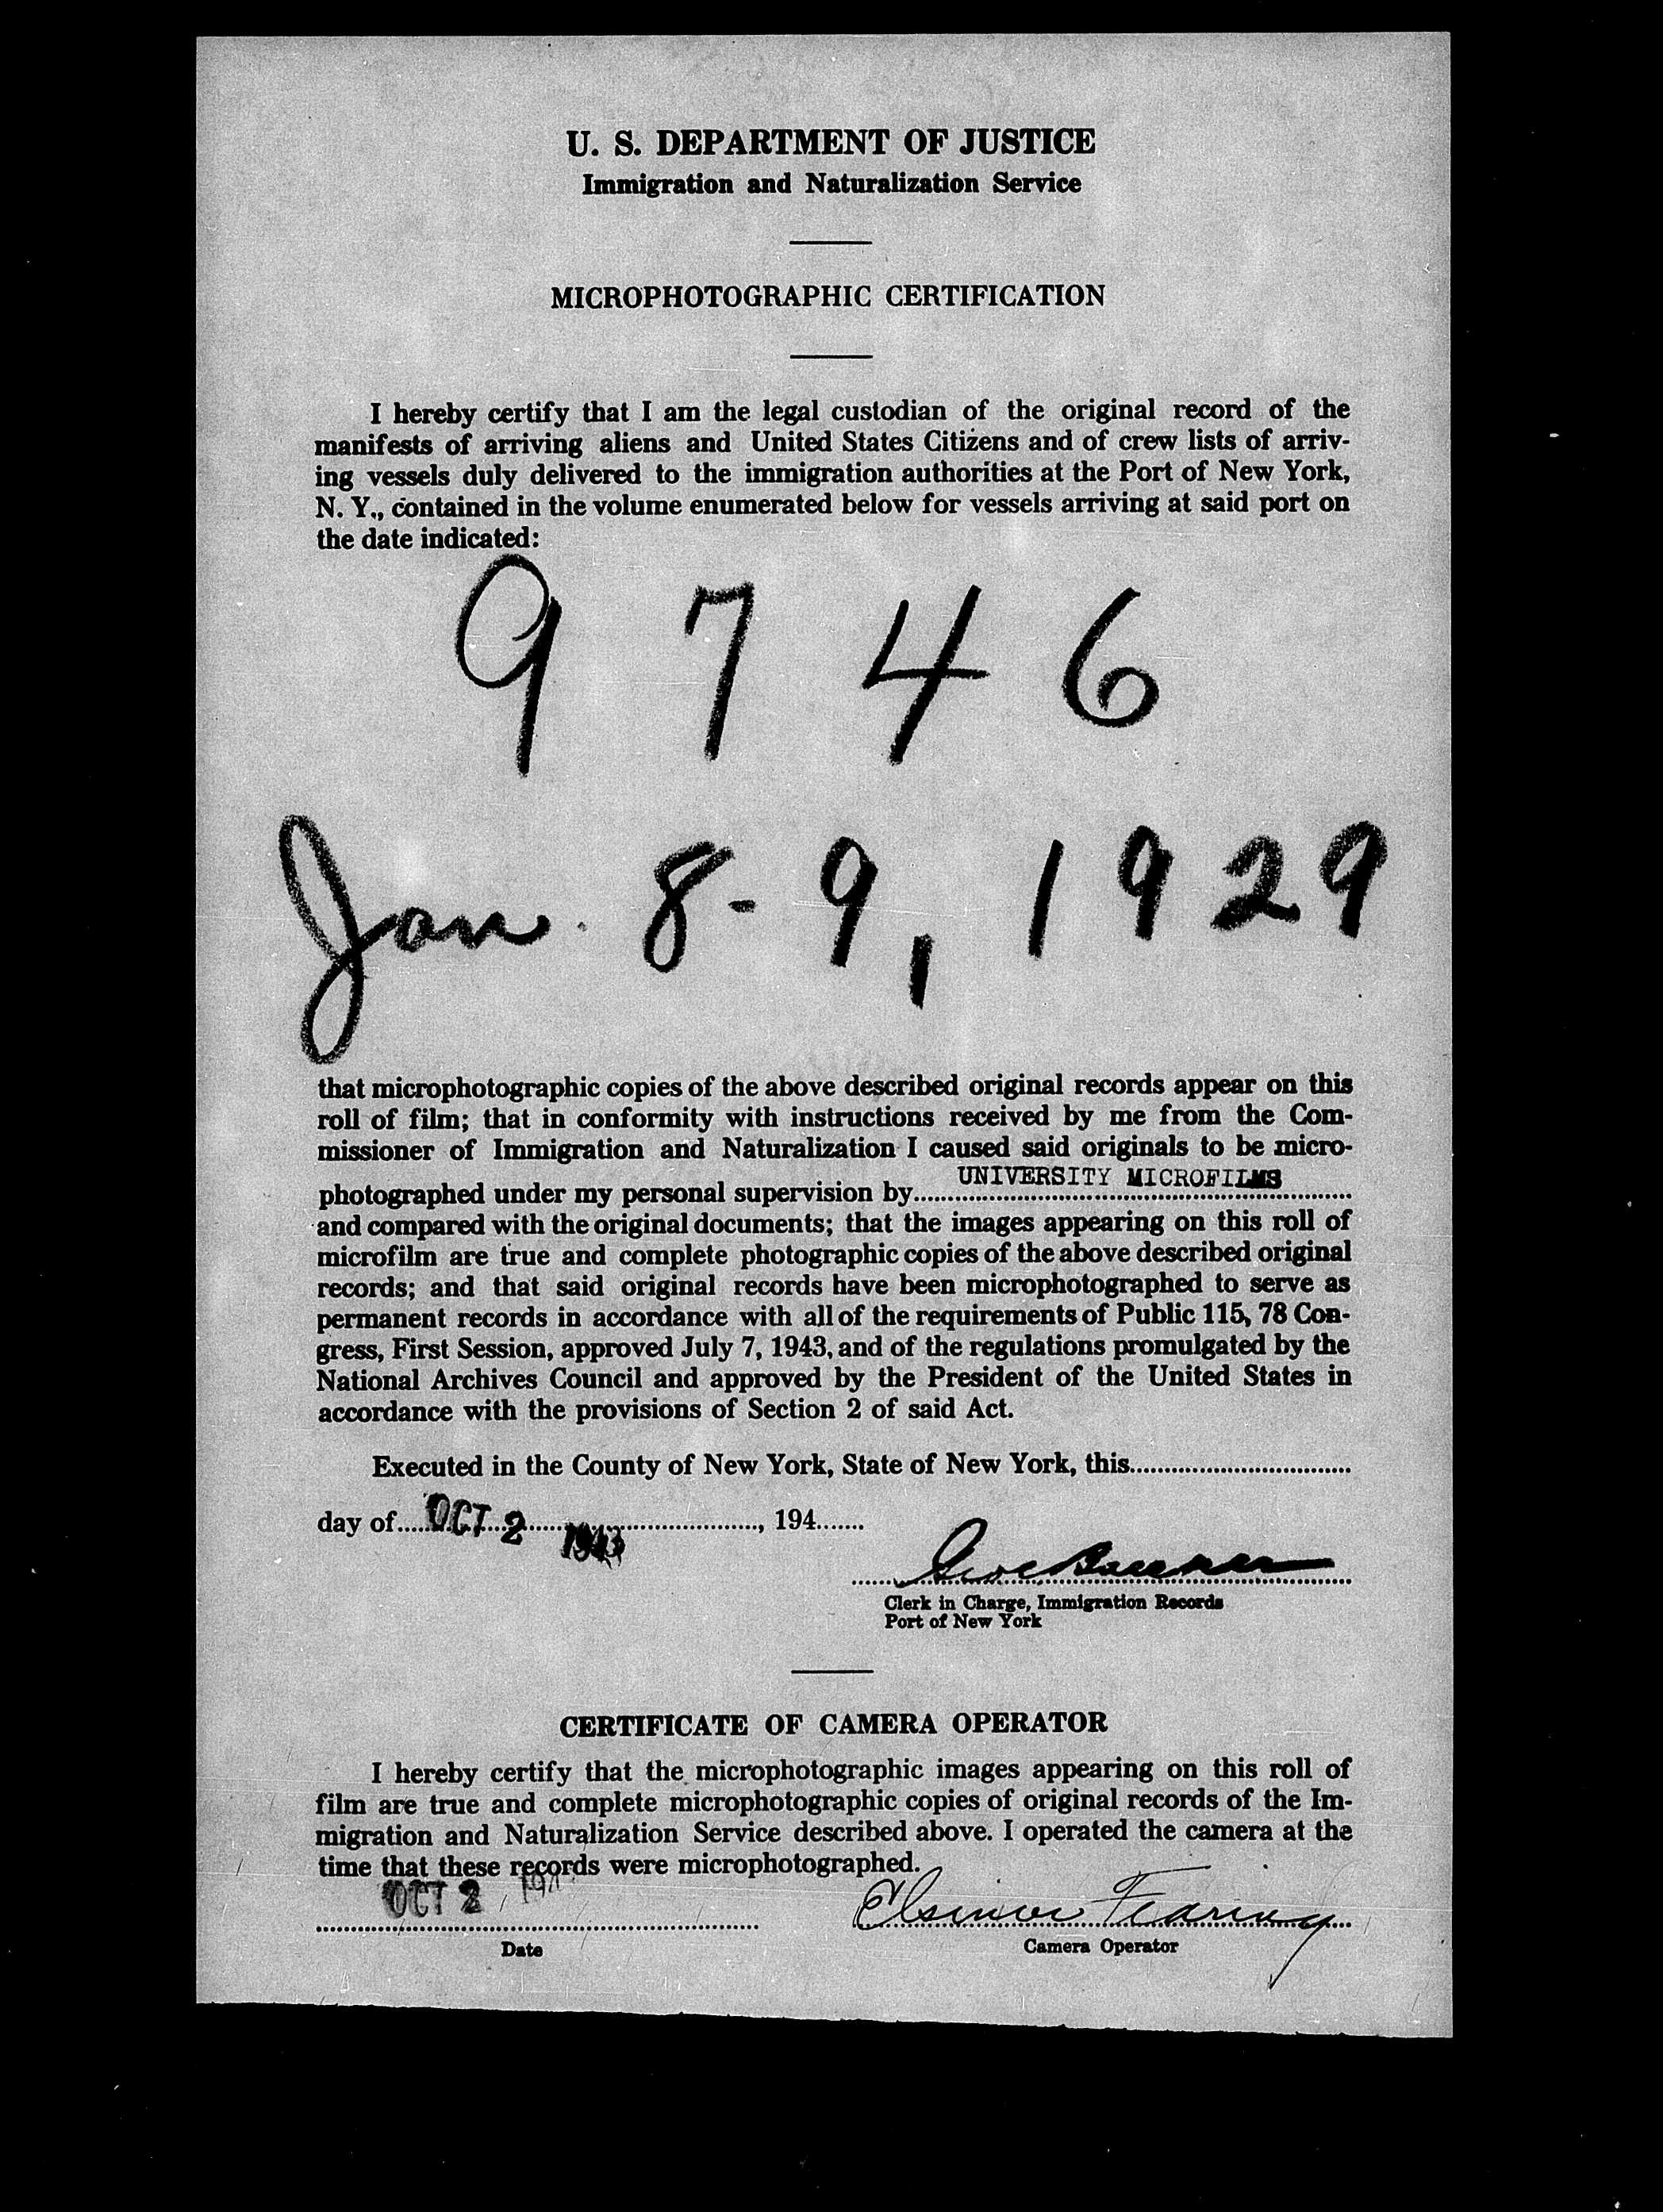 U. S. DEPARTMENT OF JUSTICE
Immigration and Naturalization Service
MICROPHOTOGRAPHIC CERTIFICATION
I hereby certify that I am the legal custodian of the original record of the
manifests of arriving aliens and United States Citizens and of crew lists of arriv-
ing vessels duly delivered to the immigration authorities at the Port of New York,
N. Y., contained in the volume enumerated below for vessels arriving at said port on
the date indicated:
9 7 4 6
Jan. 8-9, 1929
that microphotographic copies of the above described original records appear on this
roll of film; that in conformity with instructions received by me from the Com-
missioner of Immigration and Naturalization I caused said originals to be micro-
photographed under my personal supervision by UNIVERSITY MICROFILMS
and compared with the original documents; that the images appearing on this roll of
microfilm are true and complete photographic copies of the above described original
records; and that said original records have been microphotographed to serve as
permanent records in accordance with all of the requirements of Public 115, 78 Con-
gress, First Session, approved July 7, 1943, and of the regulations promulgated by the
National Archives Council and approved by the President of the United States in
accordance with the provisions of Section 2 of said Act.
Executed in the County of New York, State of New York, this
day of OCT 2 1943, 194
Clerk in Charge, Immigration Records
Port of New York
CERTIFICATE OF CAMERA OPERATOR
I hereby certify that the microphotographic images appearing on this roll of
film are true and complete microphotographic copies of original records of the Im-
migration and Naturalization Service described above. I operated the camera at the
time that these records were microphotographed.
OCT 2 Fearing
Date Camera Operator